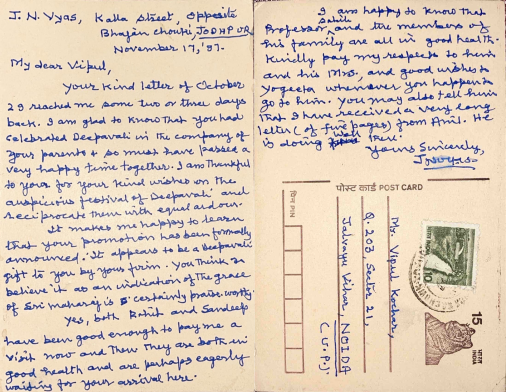 J. N. Vyas, Kalla Street, Opposite
Bhaijan Chouki, JODHPUR.
November 17, '97.
My dear Vipul,
Your kind letter of October
29 reached me some two or three days
back. I am glad to know that you had
celebrated Deepavali in the company of
your parents & so must have passed a
very happy time together. I am thankful
to your for your kind wishes on the
auspicious festival of Deepavali and
reciprocate them with equal ardour.
It makes me happy to learn
that your promotion has been formally
announced. It appears to be a Deepavali
gift to you by your firm. You think &
believe it as an indication of the grace
of Sri maharaj is certainly praise-worthy.
Yes, both Rohit and Sandeep
have been good enough to pay me a
visit now and then. They are both in
good health and are perhaps eagerly
waiting for your arrival here.
I am happy to know that
Professor Sahib and the members of
his family are all in good health.
Kindly pay my respects to him
and his Mrs, and good wishes to
Yogeeta whenever you happen to
go to him. You may also tell him
that I have received a very long
letter (of five pages) from Anil. He
is doing well there.
Yours Sincerely,
J N Vyas
पोस्ट कार्ड POST CARD
पिन PIN
Mr. Vipul Kochar,
Q-203, Sector 21,
Jalvayu Vihar, NOIDA
(U.P.).
15
भारत
INDIA